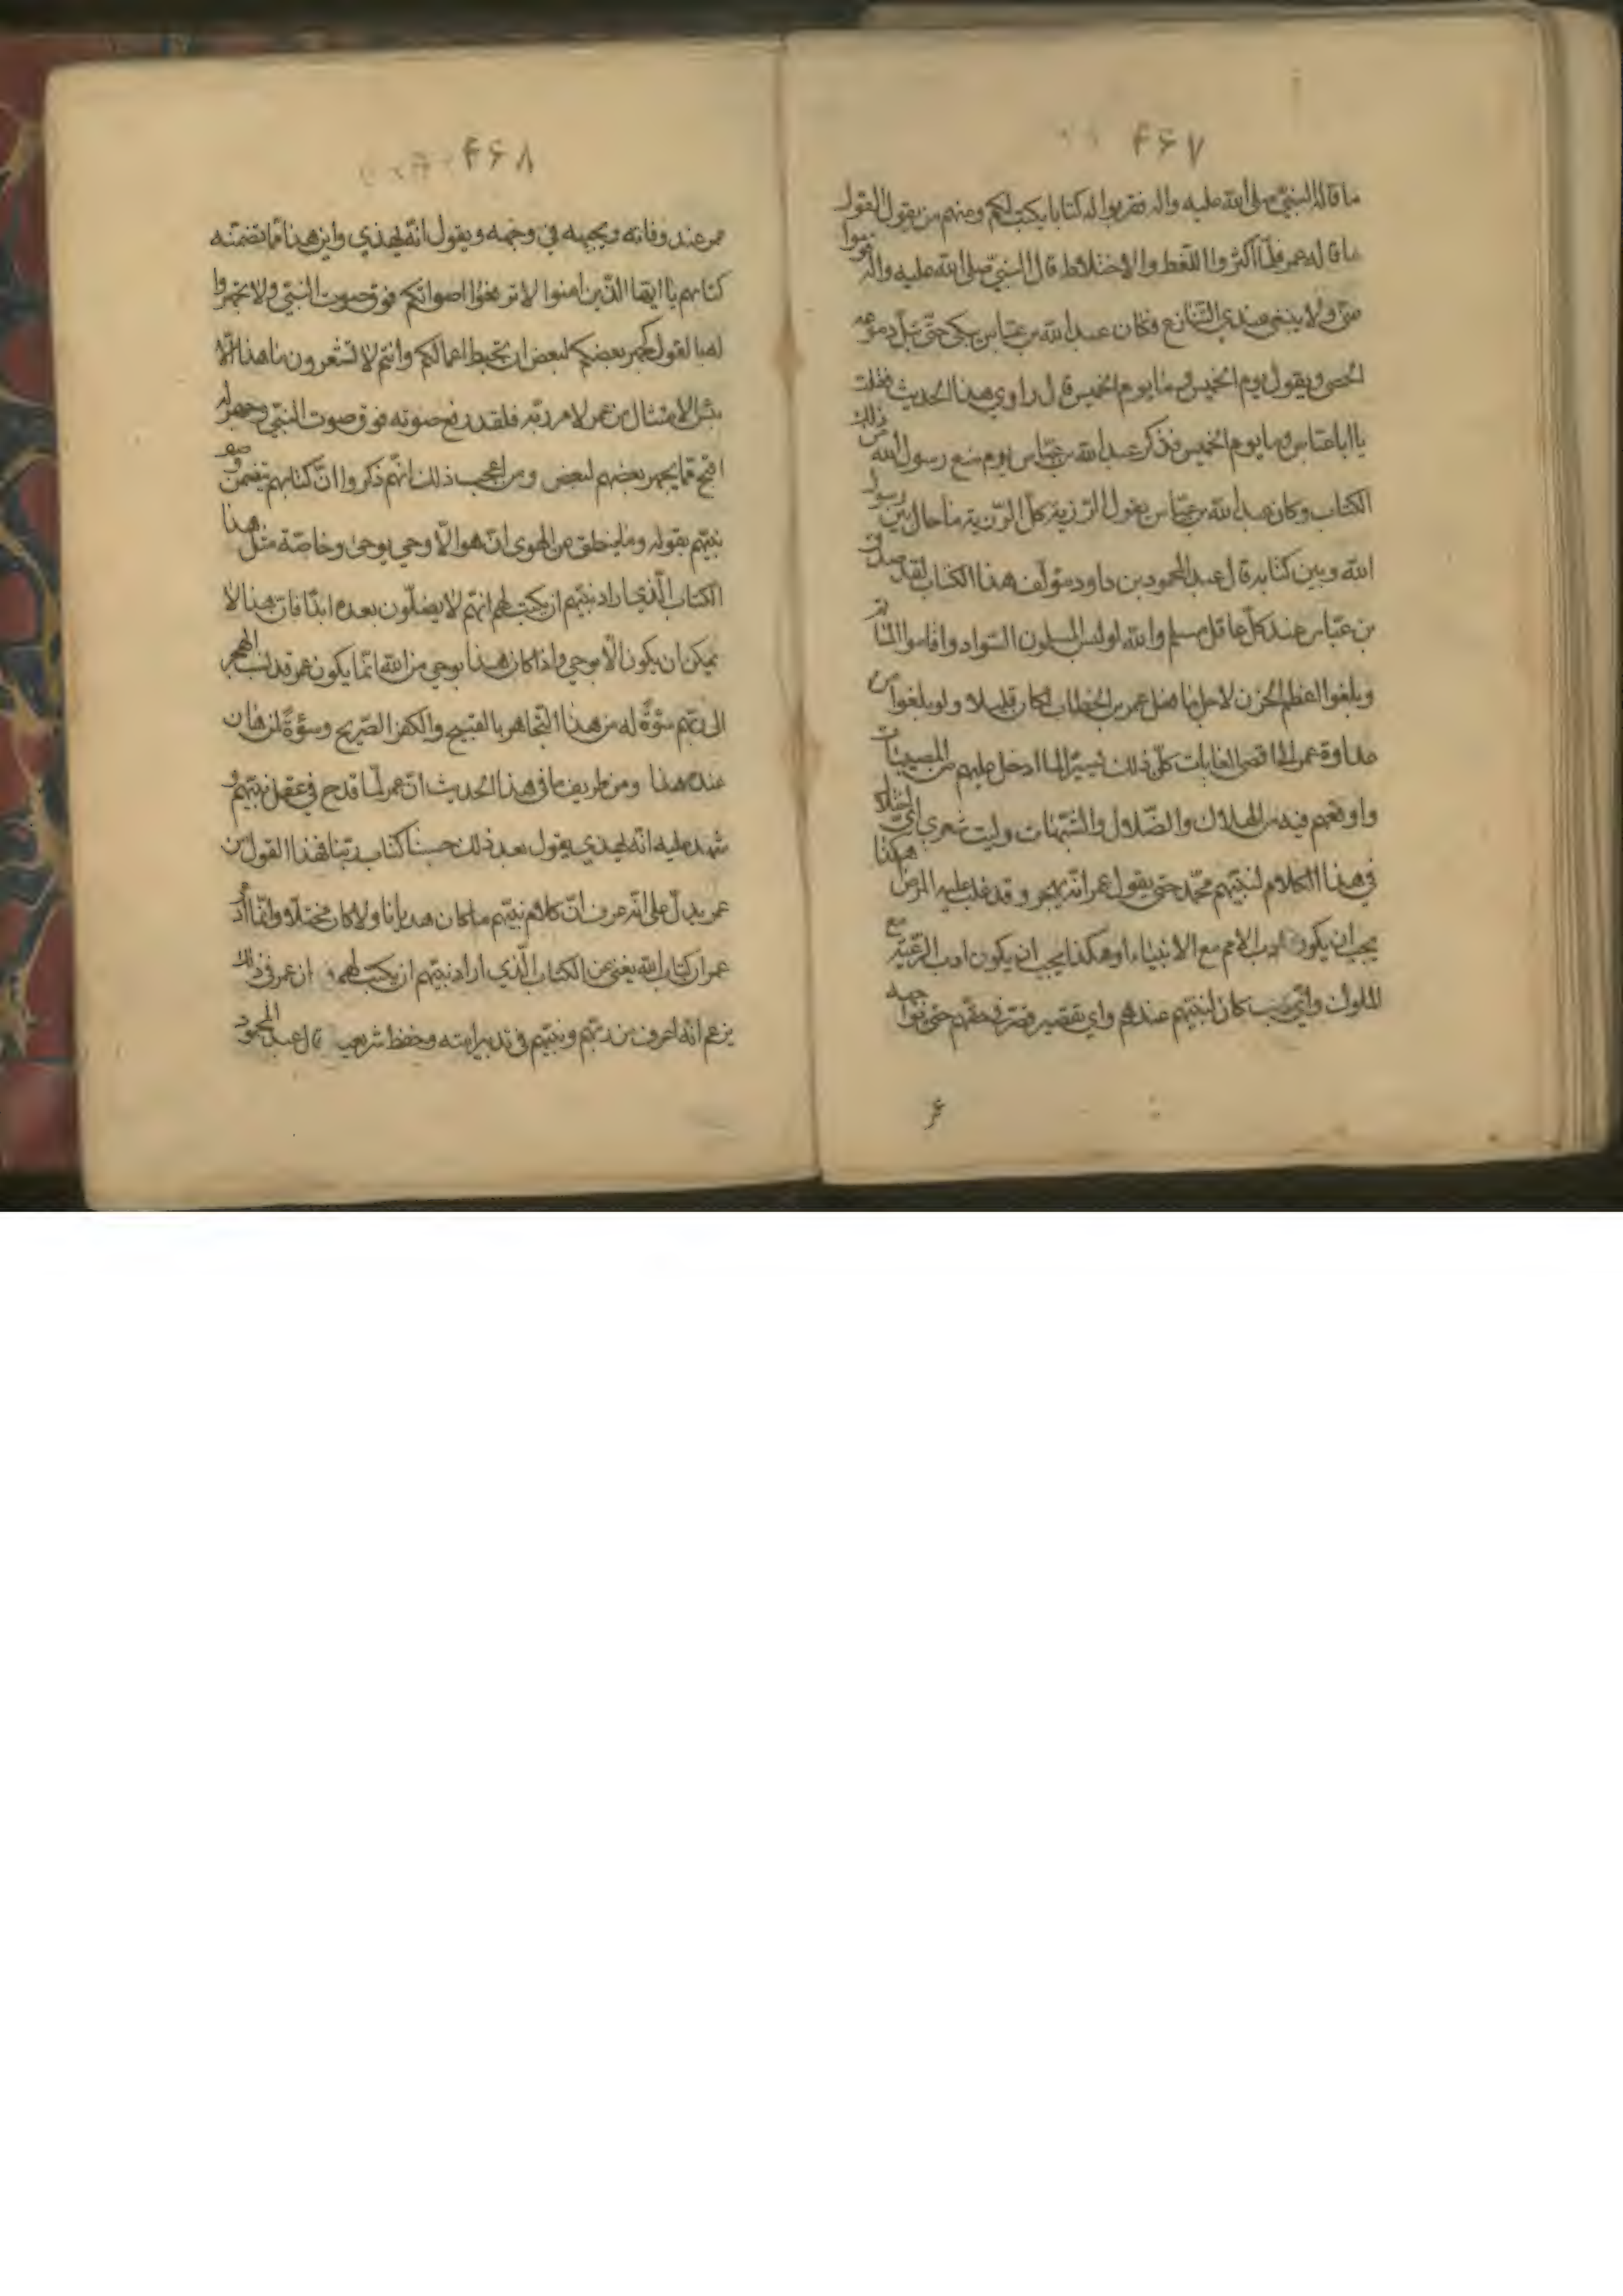 ۴۶۷
ما قاله النبي صلى الله عليه واله فقربوا له كتابا يكتب لكم ومنهم من يقول القول
ما قاله عمر فلمّا اكثروا اللّغط والاختلاط قال النبيّ صلى الله عليه واله قوموا
عنّي ولا ينبغي عندي التنازع فكان عبد الله بن عبّاس يبكي حتّى تبلّ دموعه
الحصى ويقول يوم الخميس وما يوم الخميس قال راوي هذا الحديث فقلت
يا ابا عبّاس وما يوم الخميس فذكر عبد الله بن عبّاس يوم منع رسول الله ص ذلك
الكتاب وكان عبد الله بن عبّاس يقول الرّزية كلّ الرّزية ما حال بين رسول
الله وبين كتابه قال عبد المحمود بن داود مؤلّف هذا الكتاب لقد صدق
بن عبّاس عند كلّ عاقل مسلم والله لو لبس المسلمون السّواد واقاموا الماتم
وبلغوا اعظم الحزن لاجل ما فعل عمر بن الخطاب لكان قليلا ولو بلغوا من
عداوة عمر الى اقصى الغايات كلّ ذلك يسيرا لما ادخل عليهم من المصيبات
واوقعهم فيه من الهلاك والضّلال والشّبهات وليت شعري ايّ اختلال
في هذا الكلام لنبيّهم محمّد حتى يقول عمر انّه يهجر وقد غلب عليه المرض هكذا
يجب ان يكون ادب الامم مع الانبياء او هكذا يجب ان يكون ادب الرّعيّة مع
الملوك وايّ ذنب كان لنبيّهم عندهم واي تقصير قصّر في حقّهم حتى يواجهه
عمر
۴۶۸
عمر عند وفاته ويجبهه في وجهه ويقول انّه لهذي واين هذا ممّا تضمّنه
كتابهم يا ايّها الّذين امنوا لا ترفعوا اصواتكم فوق صوت النبيّ ولا تجهروا
له بالقول كجهر بعضكم لبعض ان تحبط اعمالكم وانتم لا تشعرون ما هذا الّا
بئس الامتثال من عمر لامر ربّه فلقد رفع صوته فوق صوت النبّي وجهر له
اقبح ممّا يجهر بعضهم لبعض ومن اعجب ذلك انّهم ذكروا انّ كتابهم يتضمن وصف
نبيّهم بقوله وما ينطق عن الهوى ان هو الّا وحي يوحى وخاصّة مثل هذا
الكتاب الّذي اراد نبيّهم ان يكتب لهم انّهم لا يضلّون بعده ابدًا فانّ هذا لا
يمكن ان يكون الّا بوحي واذا كان هذا بوحي من الله انّما يكون عمر قد نسب الهجر
الى ربّهم سؤةً له من هذا التّجاهر بالقبيح والكفر الصّريح وسؤةً لمن هان
عنده هذا ومن طريف ما في هذا الحديث انّ عمر لمّا قدح في عقل نبيّهم و
شهد عليه انّه لهذي يقول بعد ذلك حسبنا كتاب ربّنا فهذا القول من
عمر يدلّ على انّه عرف انّ كلام نبيّهم ما كان هذيانا ولا كان مختلّا وانّما اراد
عمر ان كتاب الله يغني عن الكتاب الّذي اراد نبيّهم ان يكتب لهم وان عمر في ذلك
يزعم انّه اعرف من ربّهم ونبيّهم في تدبير امته وحفظ شريعته قال عبد المحمود